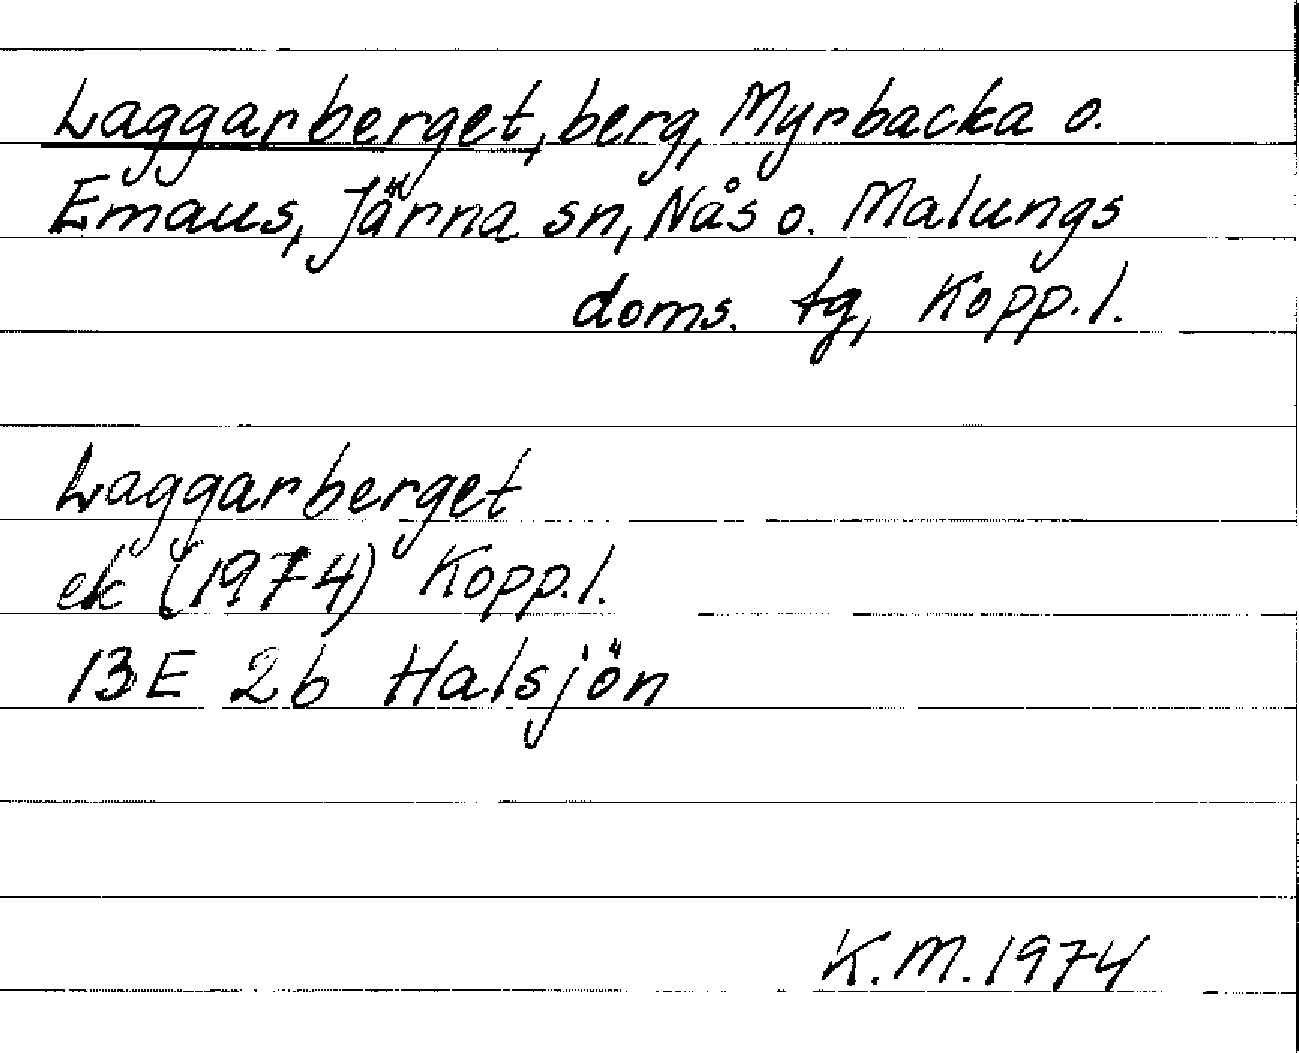 Laggarberget, berg, Myrbacka o.
Emaus, Järna sn, Nås o. Malungs
doms. tg, Kopp.l.
Laggarberget
ek (1974) Kopp.l.
13E 2b Halsjön
K.M. 1974